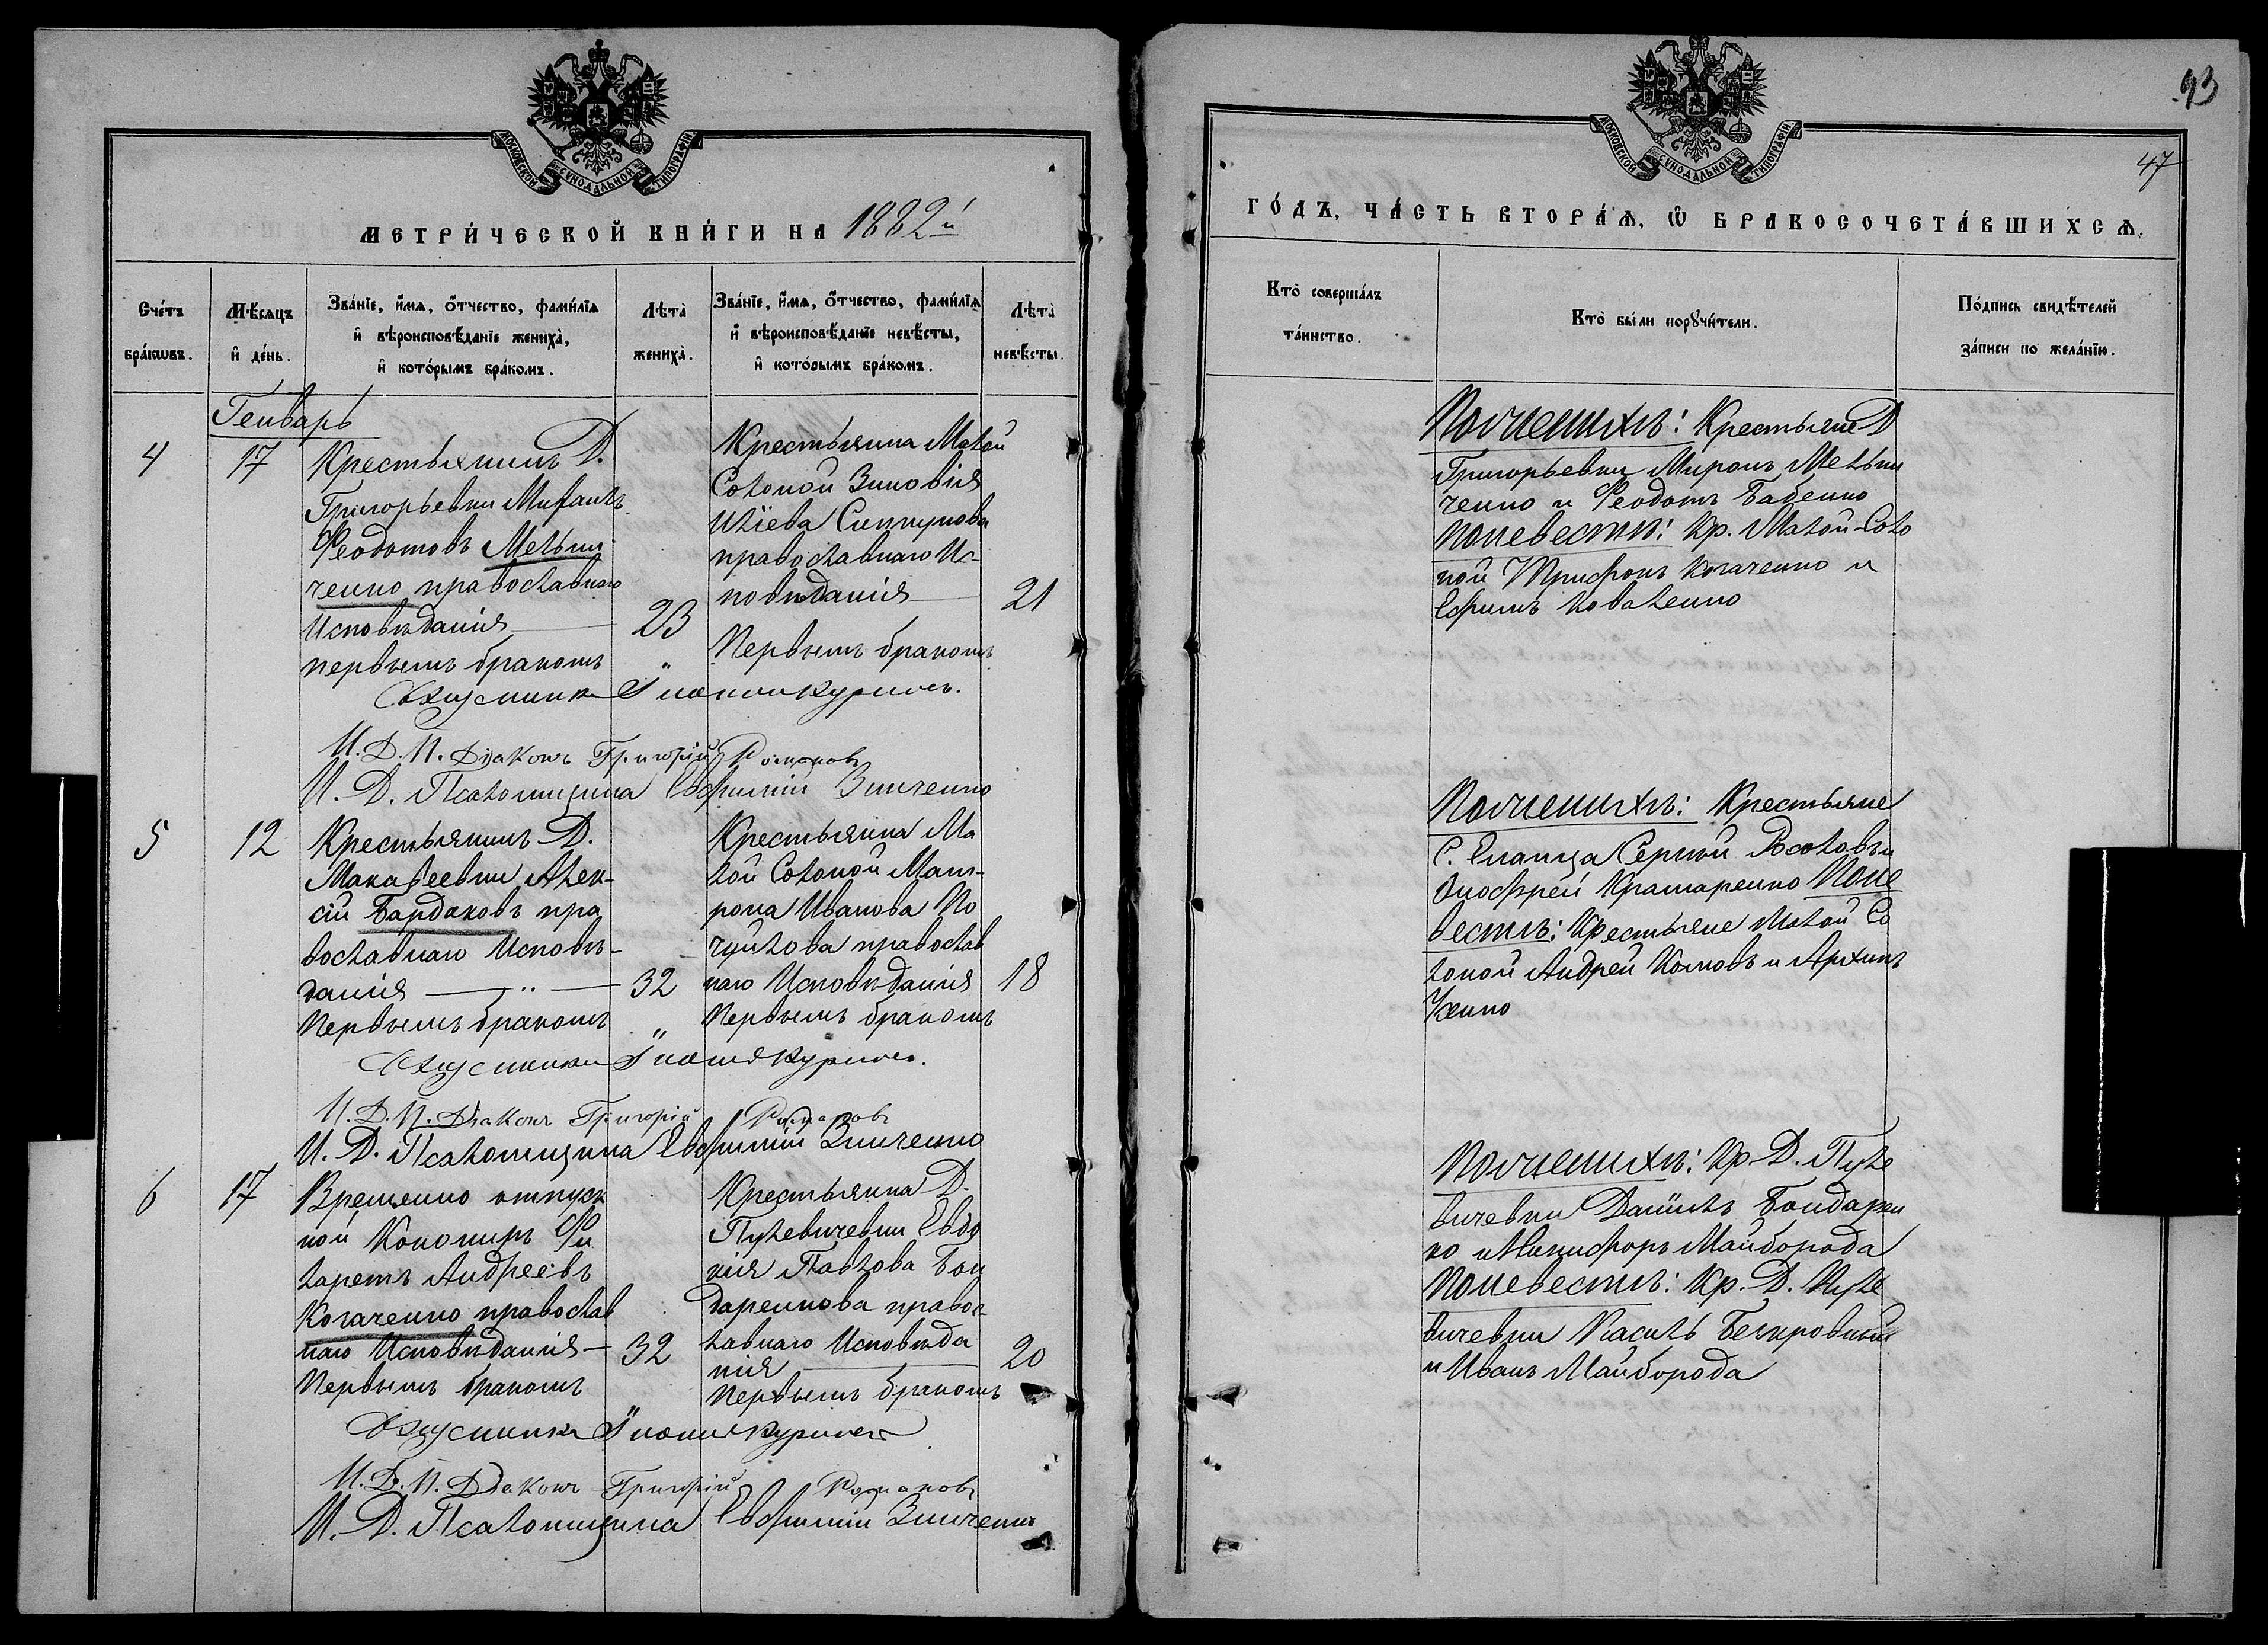 МОСКОВСКОЙ СѴНОДАЛЬНОЙ ТИПОГРАФІИ
МЕТРИ́ЧЕСКОЙ КНИ́ГИ НА 1882й
Сче́тъ бра́кѡвъ.
Мѣ́сяцъ и҆ де́нь.
Зва́нїе, и҆́мя, ѻ҆́тчество, фами́лїя
и҆ вѣроисповѣ́данїе жениха̀,
и҆ кото́рымъ бра́комъ.
Лѣта̀ жениха̀.
Зва́нїе, и҆́мя, ѻ҆́тчество, фами́лїя
и҆ вѣроисповѣ́данїе невѣ́сты,
и҆ кото́рымъ бра́комъ.
Лѣта̀ невѣ́сты.
Генварь
4
17
Крестьянинъ Д.
Григорьевки Михаилъ
Феодотовъ Мельни
ченко православнаго
Исповѣданія
23
первымъ бракомъ
Крестьянка Малой
Солоной Зиновія
Иліева
православнаго Ис-
повѣданія
21
Первымъ бракомъ
И. Д. П. Діаконъ Григорій Романовъ
И. Д. Псаломщика Евфимій Зинченко
5
12
Крестьянинъ Д.
Макафеевки Алек-
сій Бардаковъ пра
вославнаго Исповѣ-
данія
32
Первымъ бракомъ
Крестьянка Ма
лой Солоной Мат-
рона Иванова По
чуйлова православ
наго Исповѣданія
18
Первымъ бракомъ
И. Д. П. Діаконъ Григорій Романовъ
И. Д. Псаломщика Евфимій Зинченко
6
17
Временно отпуск
ной Кономиръ Фи
ларетъ Андреевъ
Когаченко православ
наго Исповѣданія
32
Первымъ бракомъ
Крестьянка Д.
Пулевичевки Евдо
кія Павлова Бон
даренкова правос-
лавнаго Исповѣда
нія
20
Первымъ бракомъ
И. Д. П. Діаконъ Григорій Романовъ
И. Д. Псаломщика Евфимій Зинченко
93
47
МОСКОВСКОЙ СѴНОДАЛЬНОЙ ТИПОГРАФІИ
ГО́ДЪ, ЧА́СТЬ ВТОРА́Ѧ, Ѡ҆ БРАКОСОЧЕТА́ВШИХСѦ.
Кто̀ соверша́лъ та́инство.
Кто̀ бы́ли порꙋчи́тели.
По́дпись свидѣ́телей за́писи по жела́нїю.
Поженихѣ: Крестьяне Д
Григорьевки Миронъ Мельни
ченко и Феодотъ Бабенко
Поневестѣ: Кр. Малой-Соло
ной Трифонъ Когаченко и
Ефимъ Коваленко
Поженихѣ: Крестьяне
С. Еланца Сергій и
Онофрей Крамаренко Поне
вестѣ: Крестьяне Малой Со
лоной Андрей Комовъ и Архипъ
Поженихѣ: Кр. Д. Пуле
вичевки Даніилъ Бондарен
ко и Никифоръ Майборода
Поневестѣ: Кр. Д. Пуле
вичевки Касилъ Безкровный
и Иванъ Майборода